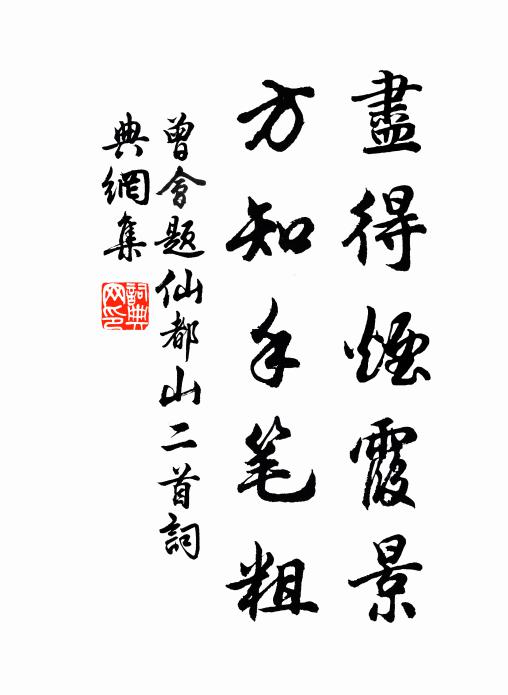 盡得煙霞景
方知手笔粗
曾會題仙都山二首詞
典網集
詞典
网印